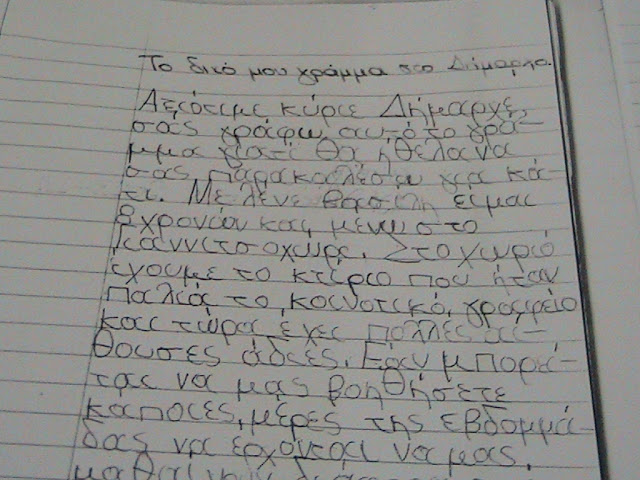 Το δικό μου γράμμα στο Δήμαρχο.
Αξιότιμε κύριε Δήμαρχε,
σας γράφω αυτό το γρά-
μμα γιατί θα ήθελα να
σας παρακαλέσω για κά-
τι. Με λένε Βασίλη είμαι
8 χρονών και μένω στο
Γιαννιτσοχώρι. Στο χωριό
έχουμε το κτίριο που ήταν
παλιά το κοινοτικό γραφείο
και τώρα έχει πολλές αί-
θουσες άδιες. Εαν μπορεί-
ται να μας βοηθήσετε
κάποιες, μέρες της εβδομμά-
δας να έρχονται να μας,